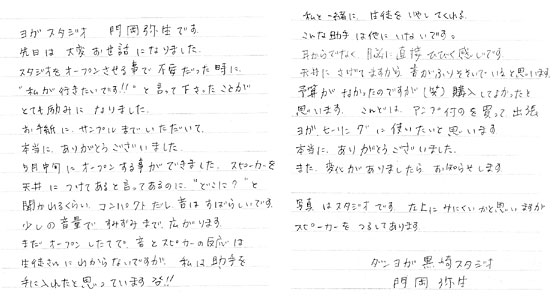 ヨガスタジオ 門岡弥生です。
先日は 大変 お世話になりました。
スタジオをオープンさせる事で 不安だった時に、
"私が行きたいです!!" と 言って下さったことが
とても励みに なりました。
お手紙に、サンプルまでいただいて、
本当に、ありがとうございました。
5月中旬に オープンする事ができました。スピーカーを
天井に つけてあると言ってあるのに、"どこに?"と
聞かれるくらい コンパクトだし、音は すばらしいです。
少しの音量で すみずみまで、広がります。
まだ オープンしたてで、音とスピーカーの反応は
生徒さんに わからないですが、私は助手を
手に入れたと思っていますヨ!!
私と一緒に、生徒をいやしてくれる。
こんな助手は他にいないです。
耳からでなく、脳に直接 ひびく感じです。
天井に さげてますから、音がふりそそいでいると思います。
予算が なかったのですが(笑) 購入してよかったと
思います。 こんどは、アンプ付のを買って 出張
ヨガ、ヒーリングに 使いたいと思います。
本当に、ありがとうございました。
また、変化がありましたら お知らせします。
写真 はスタジオです。左上に みにくいかと思いますが
スピーカーを つるしてあります
ダンヨガ 黒崎スタジオ
門岡 弥生